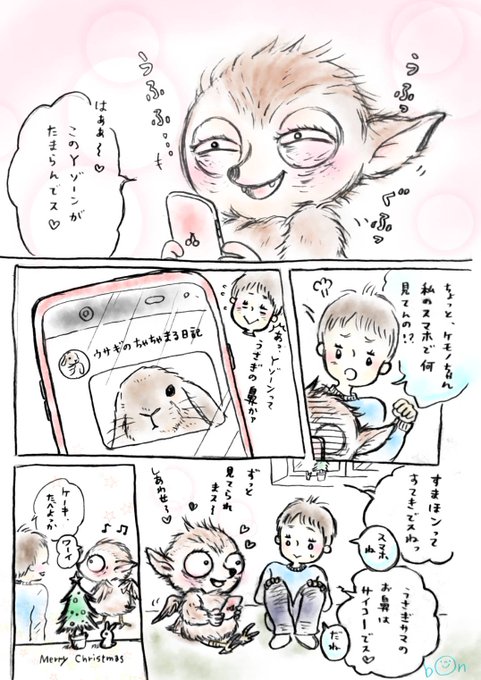 うふっ
うふふ
うふふ…
ぐふっ
ふっ
はぁぁ〜♡
このYゾーンが
たまらんでス♡
ちょっと、ケモノちゃん
私のスマホで何
見てんの!?
あっ、Yゾーンって
うさぎの鼻かァ
ウサギのちゃちゃまる日記
すまほンって
すてきでスねっ
スマホ
ね
うさぎサマの
お鼻は
サイコーでス♡
だね
ずっと
見てられ
まス〜
しあわせ〜♡
ケーキ、
たべよっか
ワーイ
Merry Christmas
bon